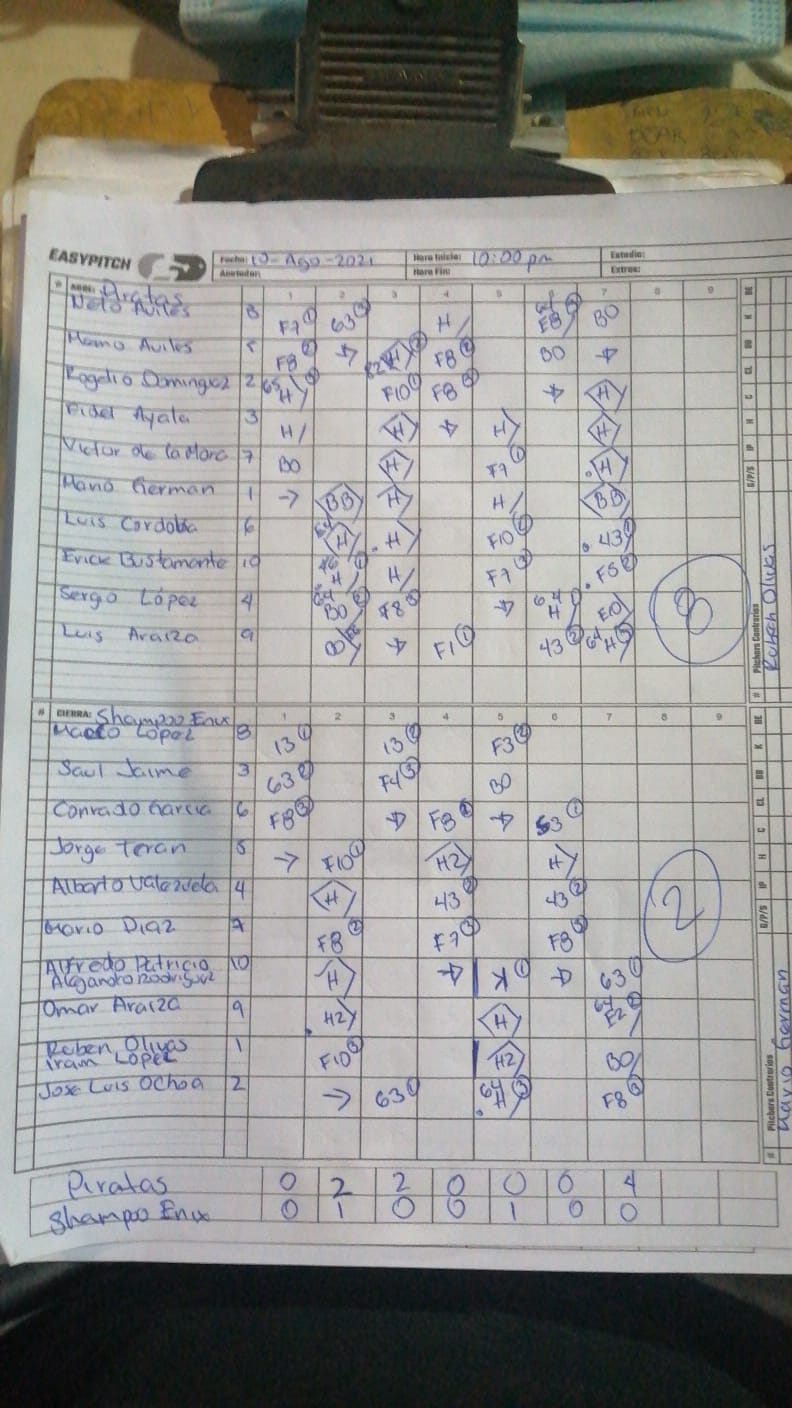 EASYPITCH
Fecha: 10-Ago-2021 Hora Inicio: 10:00 pm Estadio:
Anotador: Hora Fin: Extras:
# ABRE: Piratas 1 2 3 4 5 6 7 8 9
Neto Aviles 8 F7① 63 H F8 BO
Memo Aviles F8② H F8② BO
Rogelio Dominguez 2 H F10① F8③ H
Fidel Ayala 3 H H H H
Victor de la Mora 7 BO H F7① H
Mario German 1 BB H H BB
Luis Cordoba 6 H H F10② 43①
Erick Bustamante 10 H H F7③ F5②
Sergio López 4 64 BO F8③ 64 H
Luis Araiza 9 BO F1① 43② 64 H
8
Pitchers Contrarios
Ruben Olivas
# CIERRA: Shampoo Enix 1 2 3 4 5 6 7 8 9
López 8 13① 13② F3②
Saul Jaime 3 63② F4③ BO
Conrado Garcia 6 F8③ F8① 63①
Jorge Teran 5 F10① H2 H
Alberto Valezuela 4 H 43② 43②
Mario Diaz 7 F8② F7③ F8③
Alfredo Patricio
Alejandro Rodriguez 10 H K① 63①
Omar Araiza 9 H2 H
Ruben Olivas
Iram López 1 F10③ H2 BO
Jose Luis Ochoa 2 63① 64 H F8③
2
Pitchers Contrarios
Mario German
Piratas 0 2 2 0 0 0 4
Shampoo Enix 0 1 0 0 1 0 0